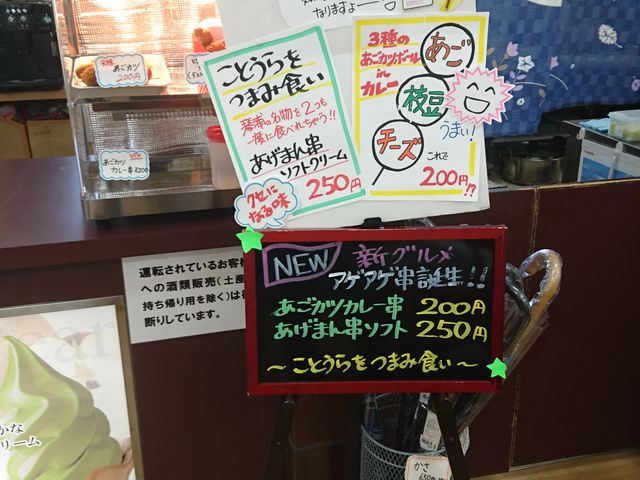 なりますよー
あごカツ
200円
あごカツ
カレー串 ¥200
ことうらを
つまみ食い
琴浦の名物を2コも
一度に食べれちゃう!!
あげまん串
ソフトクリーム
250円
クセに
なる味
3種の
あごカツボール
in
カレー
あご
枝豆
チーズ
うまい!
これで
200円!?
運転されているお客様
への酒類販売(土産
持ち帰り用を除く)は
断りしています。
NEW
新グルメ
アゲアゲ串誕生!!
あごカツカレー串 200円
あげまん串ソフト 250円
～ことうらをつまみ食い～
かな
リーム
かさ